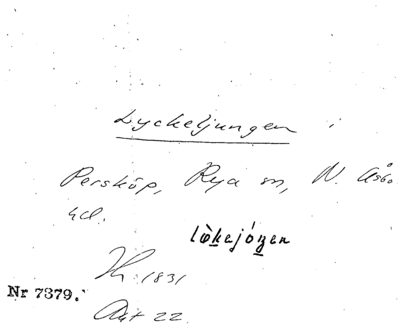 Lyckeljungen i
Persköp, Rya sn, N. Åsbo
hd.
lo̤kejóŋen
Hk 1831
Nr 7379.
Akt 22